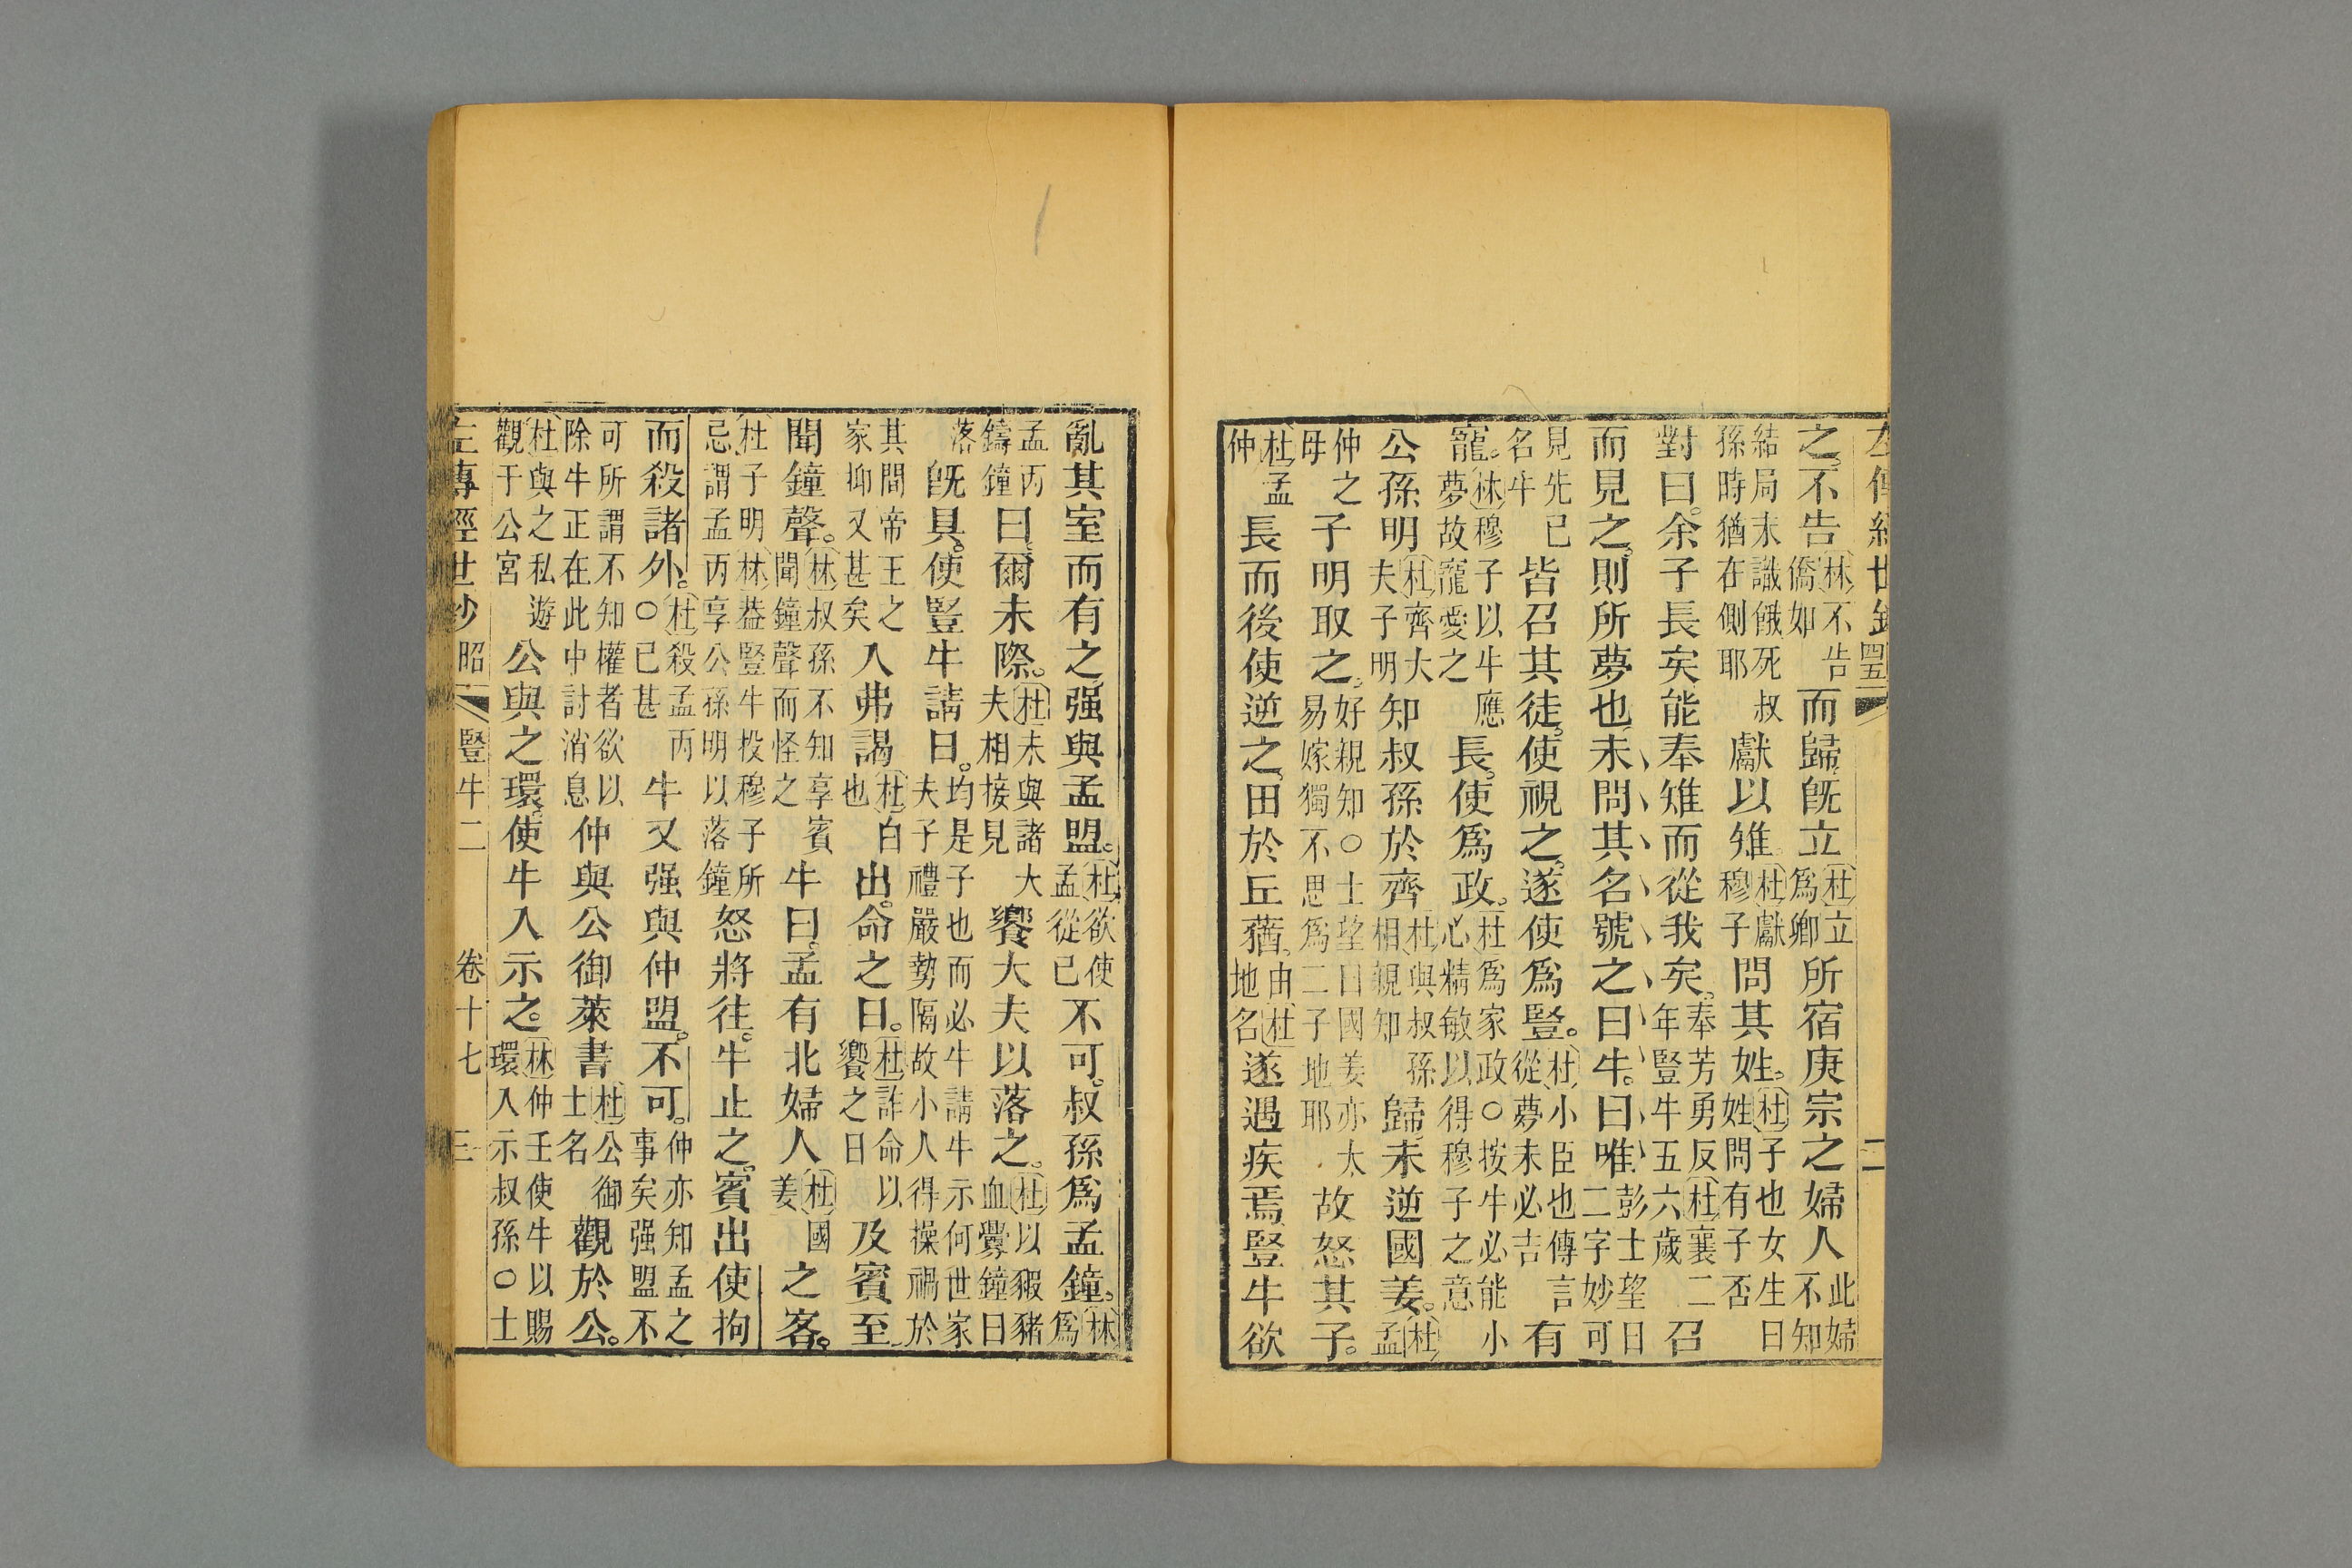 左傳經世鈔 四五 二
之。不告林不告僑如而歸。既立杜立爲卿所宿庚宗之婦人此婦不知
結局未識餓死叔孫時猶在側耶獻以雉。杜獻穆子問其姓。杜子也女生曰姓問有子否
對曰。余子長矣。能奉雉而從我矣。奉芳勇反杜襄二年豎牛五六歲召
而見之。則所夢也。未問其名號之曰牛。曰唯彭士望曰二字妙可
見先已名牛皆召其徒。使視之。遂使爲豎。杜小臣也傳言從夢未必吉有
寵。林穆子以牛應夢故寵愛之長。使爲政。杜爲家政○按牛必能小心精敏以得穆子之意
公孫明杜齊大夫子明知叔孫於齊杜與叔孫相親知歸。未逆國姜。杜孟
仲之母子明取之。好親知○士望曰國姜亦太易嫁獨不思爲二子地耶故怒其子。
杜孟仲長而後使逆之。田於丘蕕。由杜地名遂遇疾焉。豎牛欲
亂其室而有之。强與孟盟。杜欲使孟從已不可。叔孫爲孟鐘。林爲
孟丙鑄鐘曰。爾未際。杜未與諸大夫相接見饗大夫以落之。杜以豭豬血釁鐘曰
落既具。使豎牛請日。均是子也而必牛請牛示何世家夫子禮嚴勢隔故小人得操禍於
其間帝王之家抑又甚矣入弗謁杜白也出。命之日。杜詐命以饗之日及賓至
聞鐘聲。林叔孫不知享賓聞鐘聲而怪之牛曰。孟有北婦人杜國姜之客。
杜子明林葢豎牛投穆子所忌謂孟丙享公孫明以落鐘怒將往。牛止之。賓出使拘
而殺諸外。杜殺孟丙○已甚牛又强與仲盟。不可。仲亦知孟之事矣强盟不
可所謂不知權者欲以除牛正在此中討消息仲與公御萊書杜公御士名觀於公。
杜與之私遊觀于公宮公與之環。使牛入示之。林仲壬使牛以賜環入示叔孫○士
左傳經世鈔 昭 豎牛二 卷十七 三